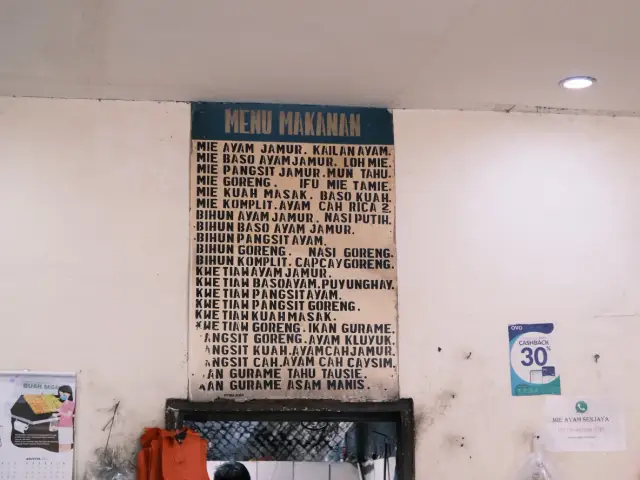 MENU MAKANAN
MIE AYAM JAMUR. KAILAN AYAM.
MIE BASO AYAM JAMUR. LOH MIE.
MIE PANGSIT JAMUR. MUN TAHU.
MIE GORENG. IFU MIE TAMIE.
MIE KUAH MASAK. BASO KUAH.
MIE KOMPLIT. AYAM CAH RICA 2.
BIHUN AYAM JAMUR. NASI PUTIH.
BIHUN BASO AYAM JAMUR.
BIHUN PANGSIT AYAM.
BIHUN GORENG. NASI GORENG.
BIHUN KOMPLIT. CAPCAY GORENG.
KWE TIAW AYAM JAMUR.
KWE TIAW BASO AYAM. PUYUNGHAY.
KWE TIAW PANGSIT AYAM.
KWE TIAW PANGSIT GORENG.
KWE TIAW KUAH MASAK.
KWE TIAW GORENG. IKAN GURAME.
ANGSIT GORENG. AYAM KLUYUK.
ANGSIT KUAH. AYAM CAH JAMUR.
ANGSIT CAH. AYAM CAH CAYSIM.
AN GURAME TAHU TAUSIE.
AN GURAME ASAM MANIS.
OVO
CASHBACK
30%
MIE AYAM
AGUSTUS